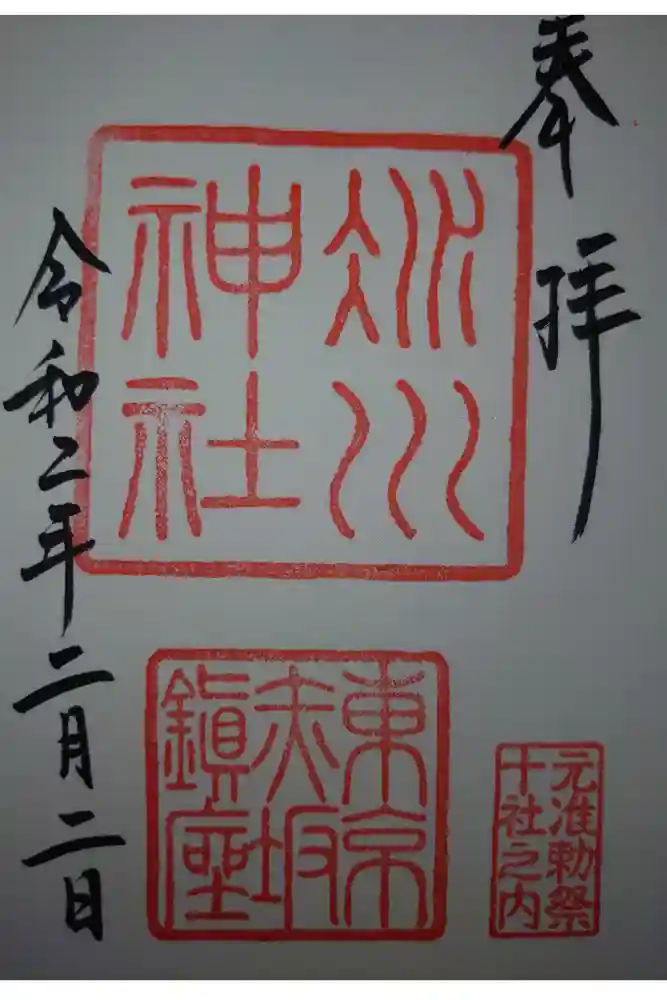 奉拝
氷川
神社
東京
赤坂
鎮座
元准勅祭
十社之内
令和二年二月二日